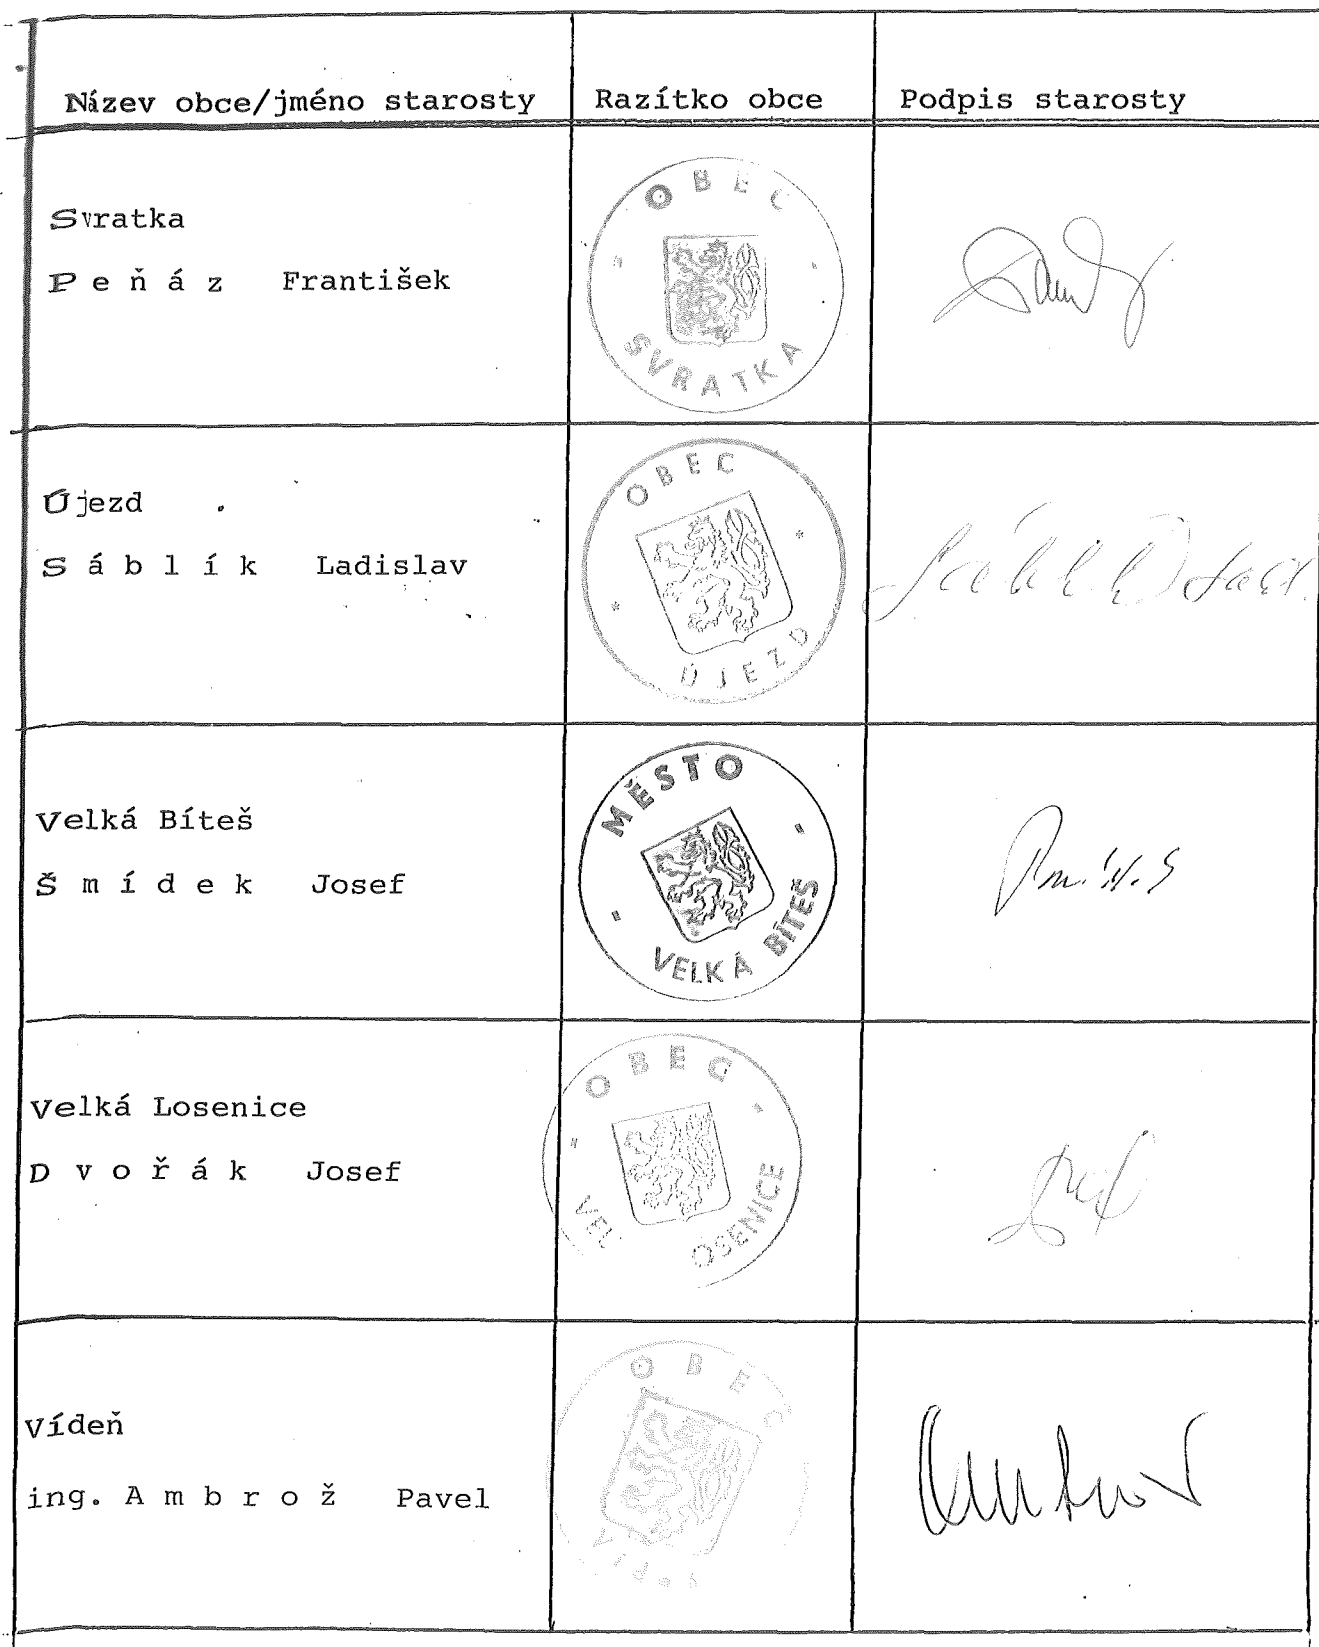 Název obce/jméno starosty Razítko obce Podpis starosty
Svratka
P e ň á z František
OBEC
SVRATKA
Újezd
S á b l í k Ladislav
OBEC
ÚJEZD
Velká Bíteš
Š m í d e k Josef
MĚSTO
VELKÁ BÍTEŠ
Velká Losenice
D v o ř á k Josef
OBEC
VEL OSENICE
Vídeň
ing. A m b r o ž Pavel
OBEC
Vídeň